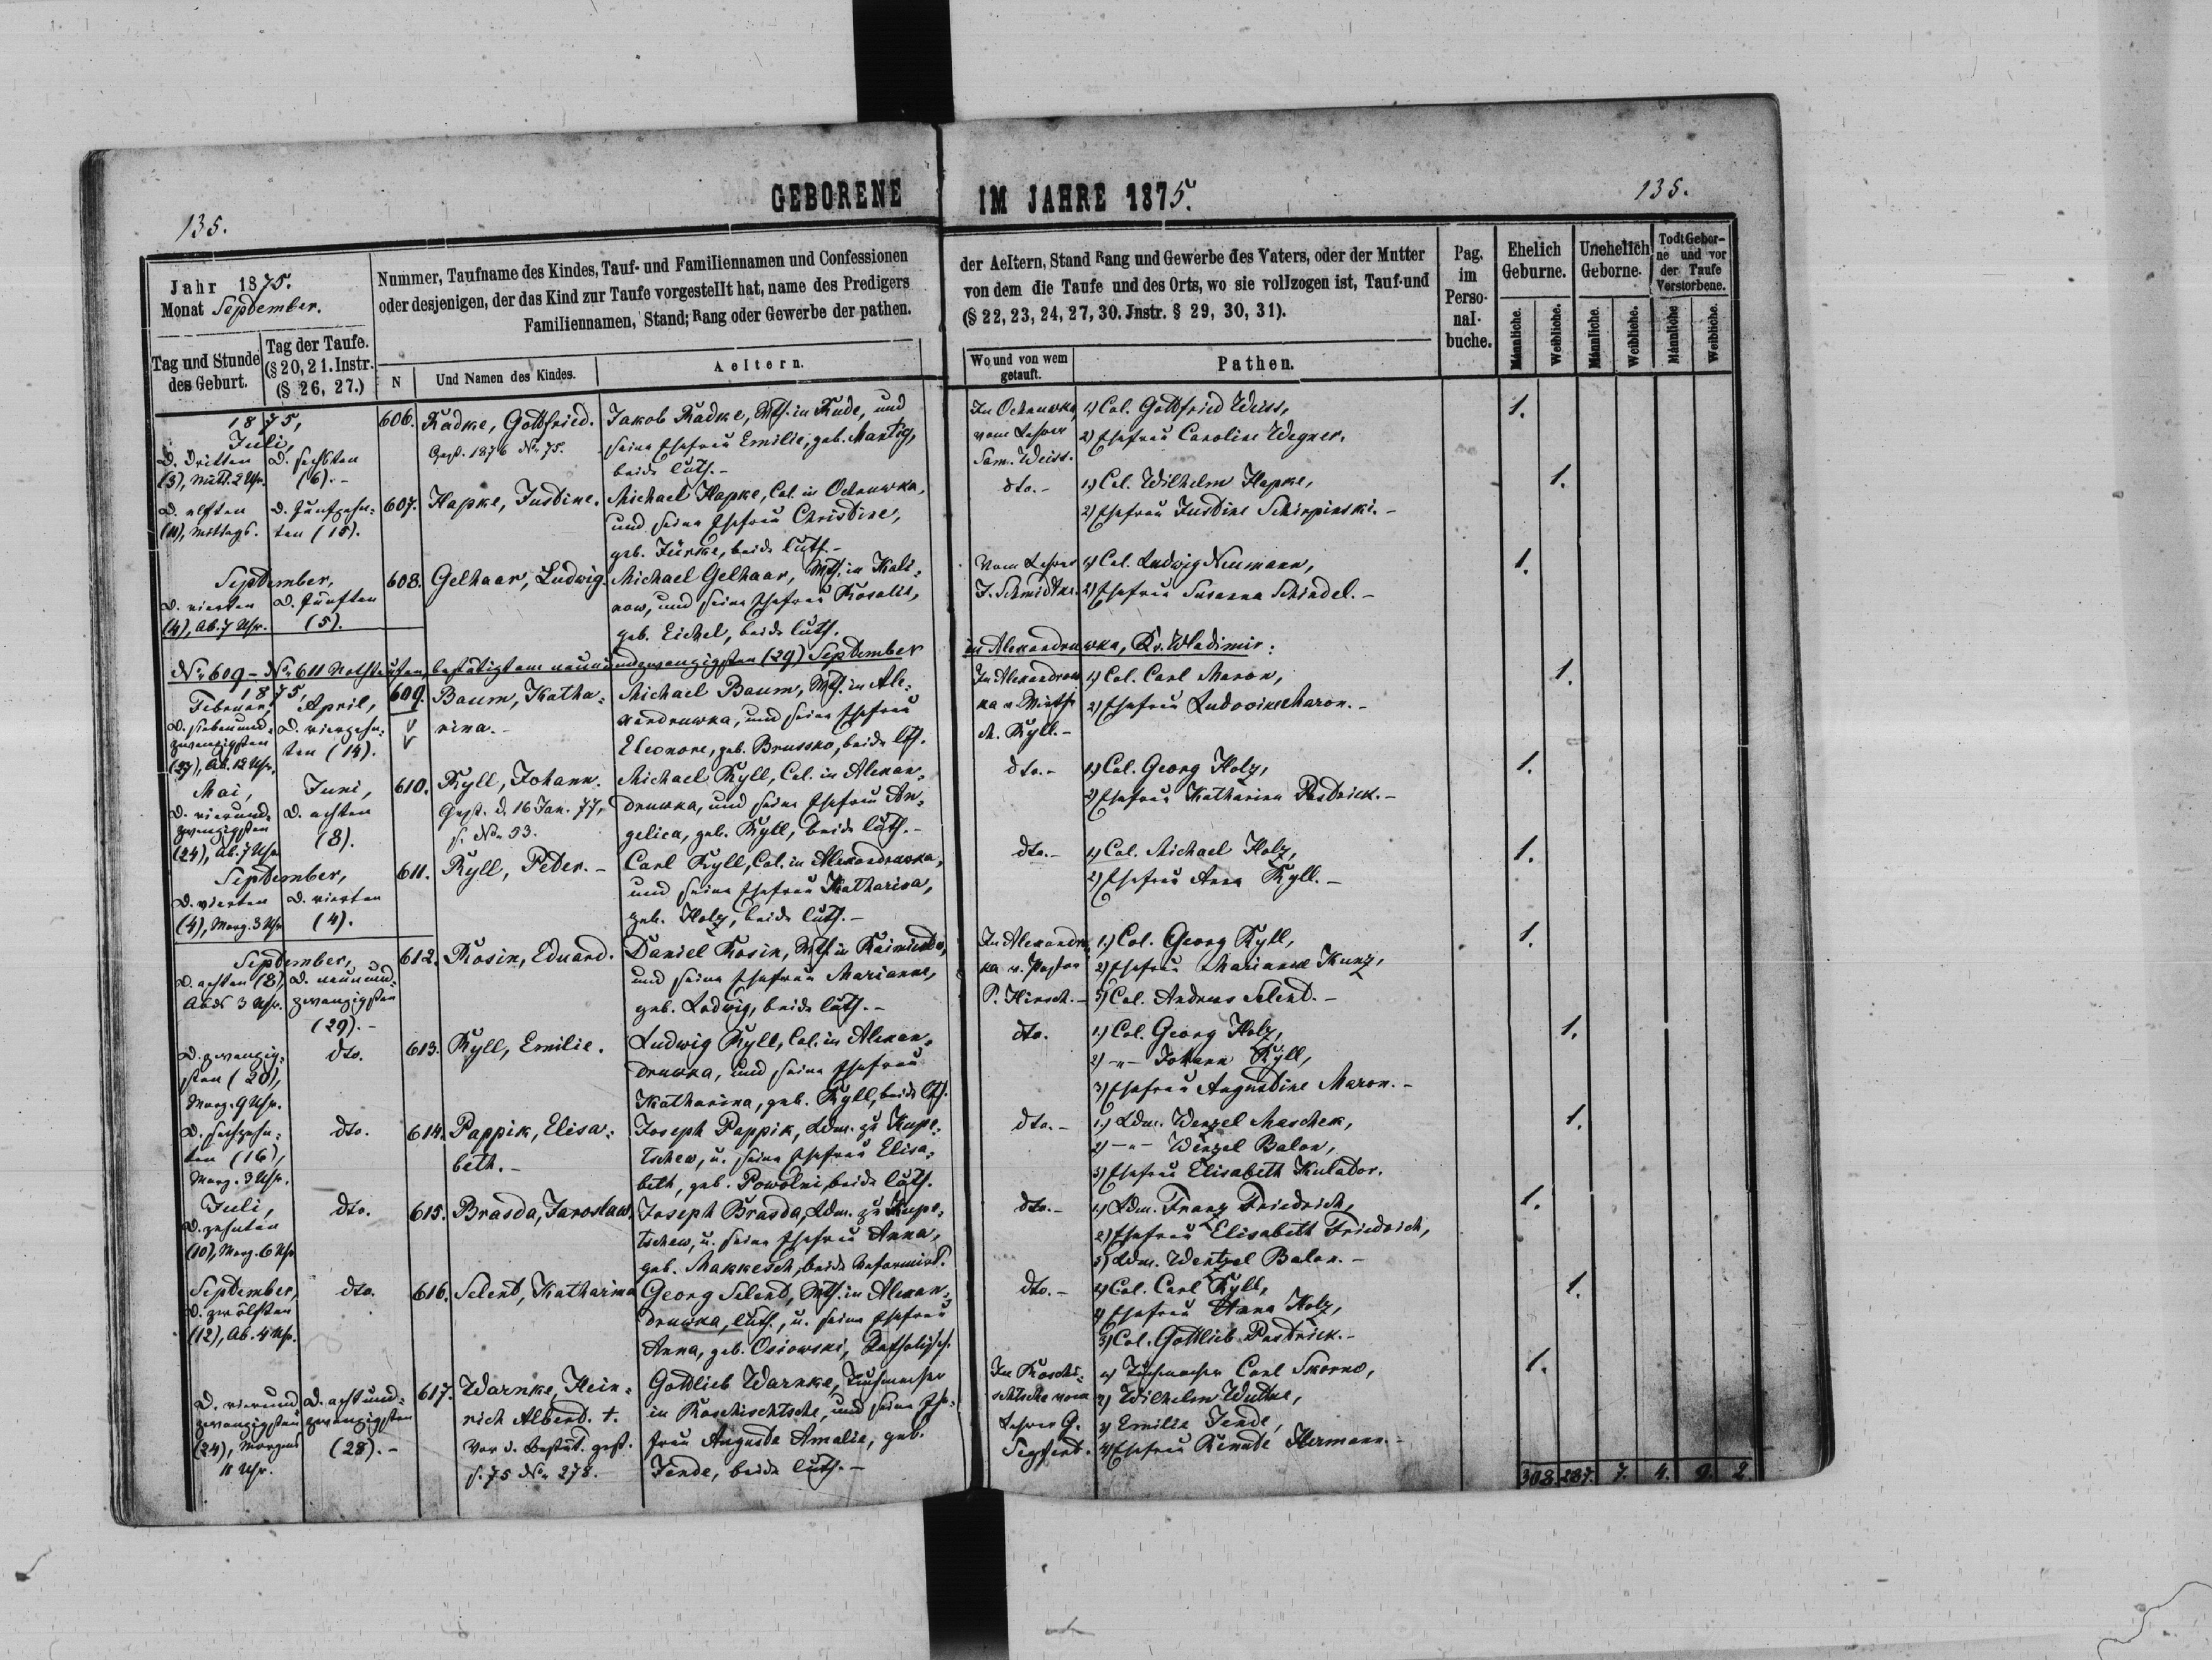 GEBORENE IM JAHRE 1875.
135.
135.
Jahr 1875.
Monat September.
Nummer, Taufname des Kindes, Tauf- und Familiennamen und Confessionen
oder desjenigen, der das Kind zur Taufe vorgestellt hat, name des Predigers
Familiennamen, Stand; Rang oder Gewerbe der pathen.
der Aeltern, Stand Rang und Gewerbe des Vaters, oder der Mutter
von dem die Taufe und des Orts, wo sie vollzogen ist, Tauf-und
(§ 22, 23, 24, 27, 30. Jnstr. § 29, 30, 31).
Tag und Stunde
des Geburt.
Tag der Taufe.
(§ 20, 21. Instr.
(§ 26, 27.)
N
Und Namen des Kindes.
Aeltern.
Wo und von wem
getauft.
Pathen.
Pag.
im
Perso-
nal-
buche.
Ehelich
Geburne.
Unehelich
Geborne.
Todt Gebor-
ne und vor
der Taufe
Verstorbene.
Männliche.
Weibliche.
Männliche.
Weibliche.
Männliche
Weibliche.
1875,
Juli,
D. dritten
(3), Mitt. 2 Uhr.
D. sechsten
(6). -
606.
Radke, Gottfried.
Gest. 1876 No 75.
Jakob Radke, Wth. in Rude, und
seine Ehefrau Emilie, geb. Mantig,
beide luth. -
In Ochnuwka,
vom Lehrer
Sam. Weiss.
1) Col. Gottfried Weiss,
2) Ehefrau Caroline Wegner.
1.
D. elften
(11), Mittags.
D. fünfzehn-
ten (15).
607.
Hapke, Justine.
Michael Hapke, Col. in Ochnuwka,
und seine Ehefrau Christine,
geb. Jürske, beide luth. -
dto. -
1) Col. Wilhelm Hapke,
2) Ehefrau Justine Schirpinski. -
1.
September,
D. vierten
(4), Ab. 7 Uhr.
D. fünften
(5).
608.
Gelhaar, Ludwig.
Michael Gelhaar, Wth. in Kali-
now, und seine Ehefrau Rosalie,
geb. Eichel, beide luth.
Vom Lehrer
J. Schmidtke.
1) Col. Ludwig Neumann,
2) Ehefrau Susanna Schindel. -
1.
No 609 - No 611 Nothtaufen, bestätigt am neunundzwanzigsten (29) September in Alexandruwka, Kr. Wladimir:
1875,
Februar,
D. siebenund-
zwanzigsten
(27), Ab. 12 Uhr.
April,
D. vierzehn-
ten (14).
609.
Baum, Katha-
rina. -
Michael Baum, Wth. in Ale-
xandruwka, und seine Ehefrau
Eleonore, geb. Brussko, beide lth.
In Alexandruw-
ka v. Wirth
M. Ryll. -
1) Col. Carl Maron,
2) Ehefrau Ludovine Maron. -
1.
Mai,
D. vierund-
zwanzigsten
(24), Ab. 7 Uhr
Juni,
D. achten
(8).
610.
Ryll, Johann.
Gest. d. 16 Jan. 77,
s. No 53.
Michael Ryll, Col. in Alexan-
druwka, und seine Ehefrau An-
gelica, geb. Ryll, beide luth. -
dto. -
1) Col. Georg Holz,
2) Ehefrau Katharina Pastrick. -
1.
September,
D. vierten
(4), Morg. 3 Uhr
D. vierten
(4).
611.
Ryll, Peter. -
Carl Ryll, Col. in Alexandruwka,
und seine Ehefrau Katharina,
geb. Holz, beide luth. -
dto. -
1) Col. Michael Holz,
2) Ehefrau Anna Ryll. -
1.
September,
D. achten (8),
Abds 3 Uhr.
D. neunund-
zwanzigsten
(29). -
612.
Rosin, Eduard.
Daniel Rosin, Wth. in
und seine Ehefrau Marianne,
geb. Ludwig, beide luth. -
In Alexandruw-
ka v. Pastor
P. Hirsch. -
1.) Col. Georg Ryll,
2) Ehefrau Marianne Kunz,
3) Col. Andreas Selent. -
1.
D. zwanzig-
sten (20),
Morg. 9 Uhr.
dto.
613.
Ryll, Emilie.
Ludwig Ryll, Col. in Alexan-
druwka, und seine Ehefrau
Katharina, geb. Ryll, beide lth.
dto.
1.) Col. Georg Holz,
2) -"- Johann Ryll,
3) Ehefrau Augustine Maron. -
1.
D. sechzehn-
ten (16),
Morg. 3 Uhr.
dto.
614.
Pappik, Elisa-
beth. -
Joseph Pappik, Ldm. zu Kupe-
tschew, u. seine Ehefrau Elisa-
beth, geb. Powolni, beide luth.
dto. -
1.) Ldm. Wenzel Maschek,
2) -"- Winzel Balon,
3) Ehefrau Elisabeth Kulator.
1.
Juli,
D. zehnten
(10), Morg. 6 Uhr
dto.
615.
Brasda, Jaroslaw.
Joseph Brasda, Ldm. zu Kupe-
tschew, u. seine Ehefrau Anna,
geb. Makkesch, beide Reformirt.
dto. -
1) Ldm. Franz Friedrich,
2) Ehefrau Elisabeth Friedrich,
3) Ldm. Wentzel Balon. -
1.
September,
D. zwölften
(12), Ab. 4 Uhr.
dto.
616.
Selent, Katharina
Georg Selent, Wth. in Alexan-
druwka, luth., u. seine Ehefrau
Anna, geb. Osiowski, Katholisch.
dto. -
1) Col. Carl Ryll,
2) Ehefrau Anna Holz,
3) Col. Gottlieb Pastrick. -
1.
D. vierund
zwanzigsten
(24), Morgens
11 Uhr.
D. achtund-
zwanzigsten
(28). -
617.
Warnke, Hein-
rich Albert. †.
Vor d. Bestät. gest.
s. 75 No 278. -
Gottlieb Warnke, Tuchmacher
in Roschischtsche, und seine Ehe-
frau Auguste Amalie, geb.
Jende, beide luth. -
In Roschi-
schtsche vom
Lehrer G.
1) Tuchmacher Carl Skorno,
2) Wilhelm Wuttke,
3) Emilie Jende,
4) Ehefrau Renate Hermann. -
1.
308. 287. 7. 4. 9. 2